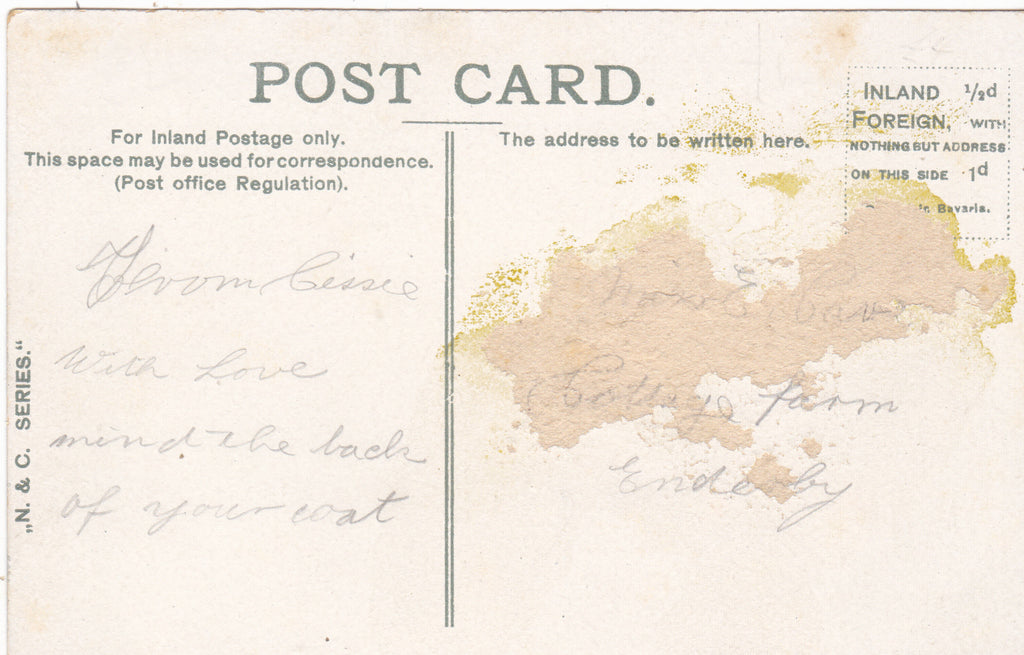 POST CARD.
For Inland Postage only.
This space may be used for correspondence.
(Post office Regulation).
The address to be written here.
INLAND 1/2d
FOREIGN, WITH
NOTHING BUT ADDRESS
ON THIS SIDE 1d
in Bavaria.
„N. & C. SERIES.“
From Cissie
With Love
mind the back
of your coat
farm
Enderby